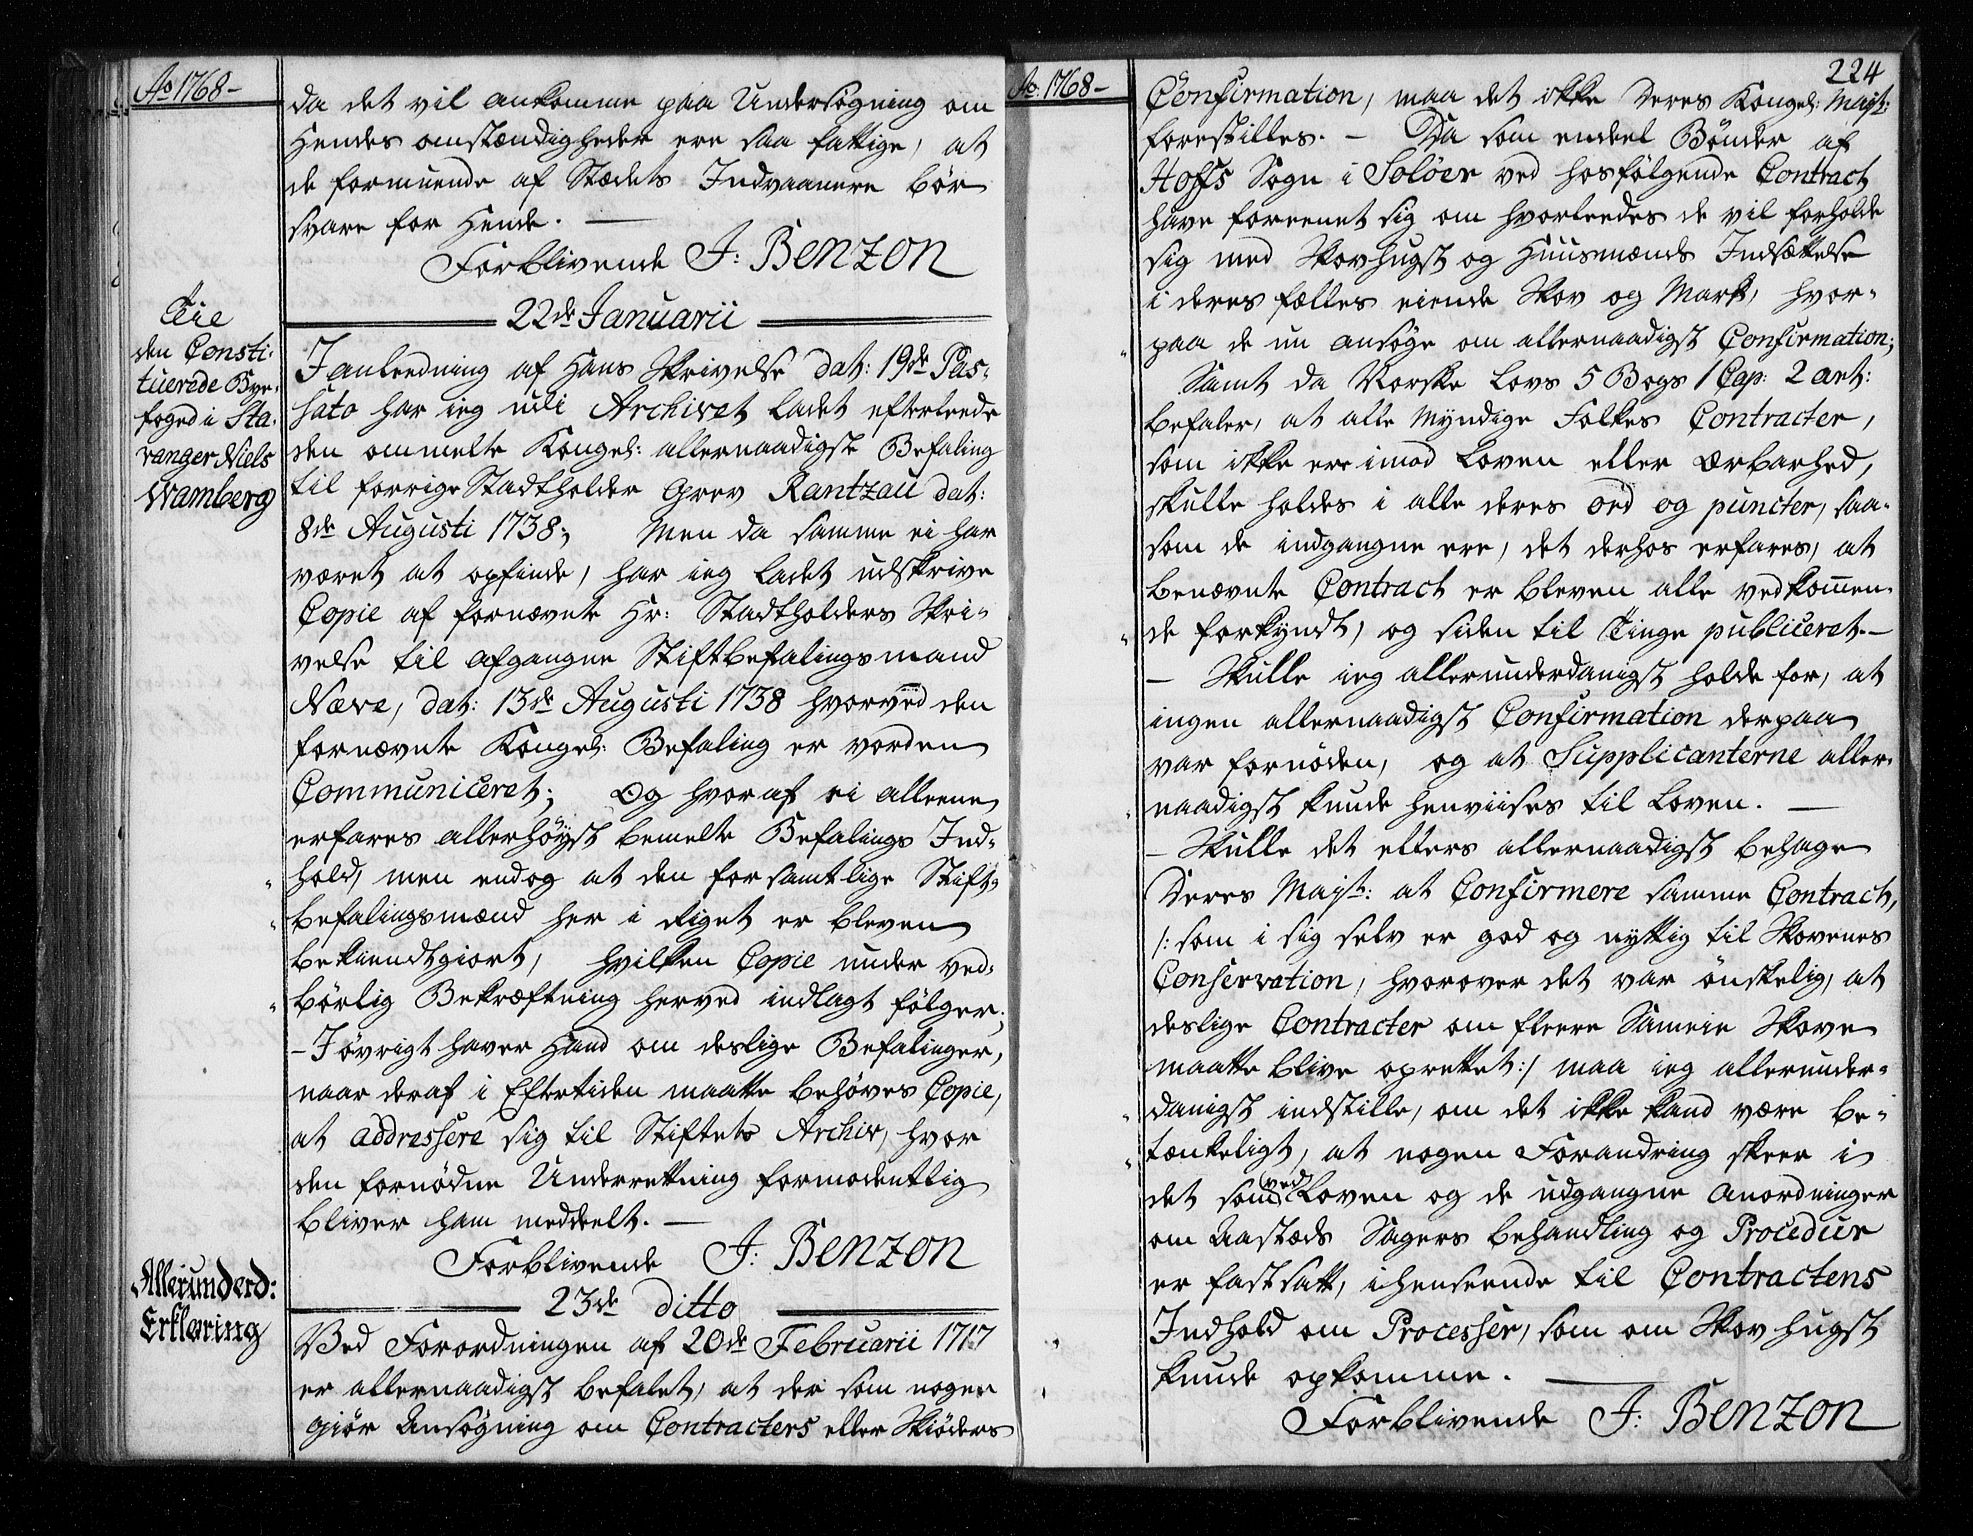 Ao 1768-
da det vil ankomme paa Undersøgning om
Hendes omstændigheder ere saa fattige, at
de formuende af Stædets Indvaanere bør
svare for Hende. —
Forblivende J: Benzon
22de Januarii
Til
den Consti-
tuerede Bye-
foged i Sta-
vanger Niels
Wamberg
I anleedning af Hans Skrivelse dat: 19de Pas-
sato har ieg udi Archivet ladet efterleede
den ommelte Kongel: allernaadigste Befaling
til forrige Stadtholder Grev Rantzau dat:
8de Augusti 1738; Men da samme ei har
været at opfinde, har ieg ladet udskrive
Copie af fornævnte Hr: Stadtholders Skri-
velse til afgangne Stiftbefalingsmand
Næve, dat: 13de Augusti 1738 hvorved den
fornævnte Kongel: Befaling er vorden
Communiceret; Og hvoraf ei alleene
erfares allerhøyst bemelte Befalings Ind-
hold, men endog at den for samtlige Stift-
befalingsmænd her i Riget er bleven
bekiendtgiort, hvilken Copie under ved-
børlig Bekræftning herved indlagt følger;
- I øvrigt haver Hand om deslige Befalinger,
naar deraf i Eftertiden maatte behøves Copie,
at addressere sig til Stiftets Archiv, hvor
den fornødne Underretning formodentlig
bliver ham meddeelt. —
Forblivende J: Benzon
23de ditto
Allerunderd:
Erklæring
Ved Forordningen af 20de Februarii 1717
er allernaadigst befalet, at der som nogen
giør Ansøgning om Contracters eller Skiøders
Ao. 1768-
224
Confirmation, maa det ikke Deres Kongel: Mayt:
forestilles. - Da som endeel Bønder af
Hoffs Sogn i Soløer ved hosfølgende Contract
have foreenet sig om hvorleedes de vil forholde
sig med Skovhugst og Huusmænds Indsættelse
i deres fælles eiende Skov og Mark, hvor-
paa de nu ansøge om allernaadigst Confirmation;
Samt da Norske Lovs 5 Bogs 1 Cap: 2 art:
befaler, at alle Myndige Folkes Contracter,
som ikke ere imod Loven eller Ærbarhed,
skulle holdes i alle deres ord og puncter, saa-
som de indgangne ere, det derhos erfares, at
benævnte Contract er bleven alle vedkom̅en-
de forkyndt, og siden til Tinge publiceret.-
- Skulle ieg allerunderdanigst holde for, at
ingen allernaadigst Confirmation derpaa
var fornøden, og at Supplicanterne aller-
naadigst kunde henviises til Loven. —
- Skulle det ellers allernaadigst behage
Deres Mayt: at Confirmere samme Contract,
/: som i sig selv er god og nyttig til Skovenes
Conservation, hvorover det var ønskelig, at
deslige Contracter om fleere Sameie Skove
maatte blive oprettet :/ maa ieg allerunder-
danigst indstille, om det ikke kand være be-
tænkeligt, at nogen Forandring skeer i
det som ved Loven og de udgangne Anordninger
om Aasteds Sagers behandling og Procedur
er fastsatt, i henseende til Contractens
Indhold om Processer, som om Skov hugst
kunde opkomme. —
Forblivende J: Benzon